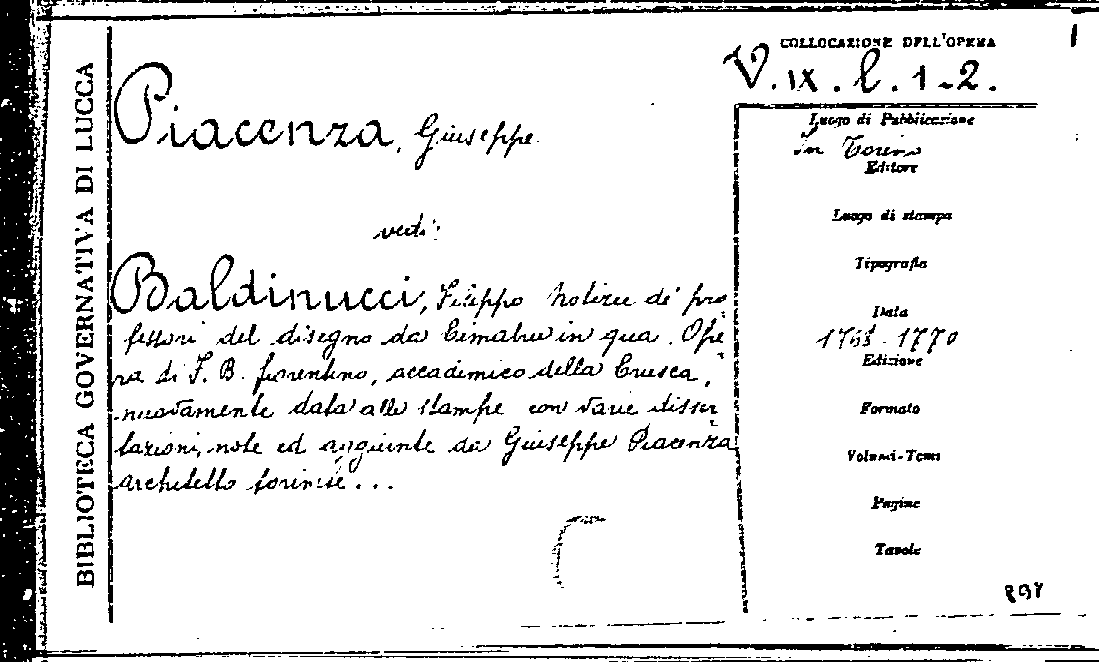 BIBLIOTECA GOVERNATIVA DI LUCCA
Piacenza, Giuseppe
vedi:
Baldinucci, Filippo Notizie de' pro
fessori del disegno da Cimabue in qua. Ope
ra di F. B. fiorentino, accademico della Crusca,
nuovamente data alle stampe con varie disser
tazioni, note ed aggiunte da Giuseppe Piacenza
architetto torinese...
1
COLLOCAZIONE DELL'OPERA
V. IX. l. 1-2.
Luogo di Pubblicazione
In Torino
Editore
Luogo di stampa
Tipografia
Data
1768-1770
Edizione
Formato
Volumi-Tomi
Pagine
Tavole